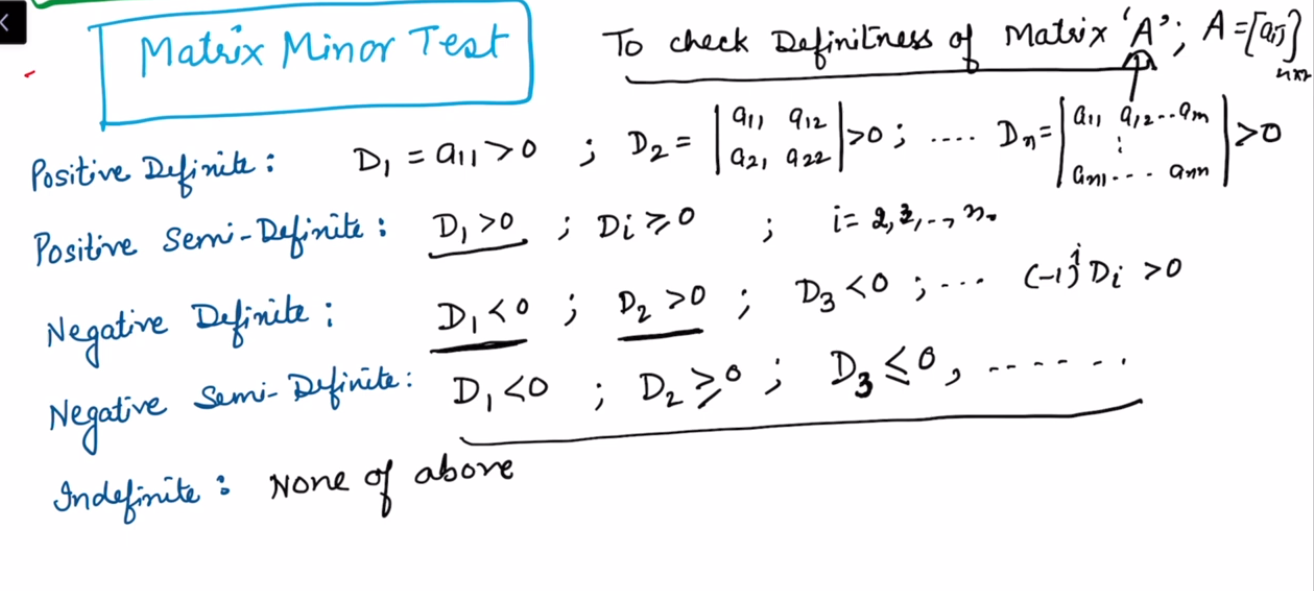 Matrix Minor Test
To check Definitness of Matrix 'A'; A=[aij]nxn
Positive Definite: D1 = a11 >0 ; D2 = |a11 a12 a21 a22| >0 ; .... Dn = |a11 a12 .. a1n ⋮ an1 ... ann| >0
Positive Semi-Definite: D1 >0 ; Di ≥ 0 ; i= 2,3,.., n.
Negative Definite: D1 <0 ; D2 >0 ; D3 <0 ; ... (-1)^i Di >0
Negative Semi-Definite: D1 <0 ; D2 ≥0 ; D3 ≤ 0, .......
Indefinite: None of above